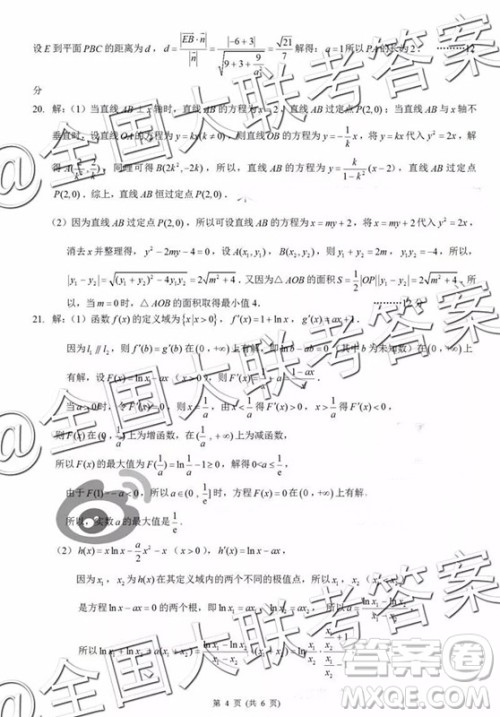 设 E 到平面 PBC 的距离为 d , d = |EB·n| / |n| = |-6+3| / √(9+3+9/a²) = √21/7 解得: a=1 所以 PA 的长为 2 . ············12
分
20. 解:(1)当直线 AB ⊥ x 轴时,直线 AB 的方程为 x=2 ,直线过定点 P(2,0) ;当直线 AB 与 x 轴不
垂直时,设直线 OA 的方程为 y=kx(k≠0) ,则直线 OB 的方程为 y=-1/k x ,将 y=kx 代入 y²=2x ,解
得 B(2k²,-2k) ,所以,直线 AB 的方程为 y = k/(1-k²) (x-2) ,直线 AB 过定点
P(2,0) . 综上,直线 AB 恒过定点 P(2,0) .
(2)因为直线 AB 过定点 P(2,0) ,所以可设直线 AB 的方程为 x=my+2 ,将 x=my+2 代入 y²=2x ,
消去 x 并整理得, y²-2my-4=0 ,设 A(x₁,y₁) , B(x₂,y₂) ,则 y₁+y₂=2m , y₁y₂=-4 ,所以,
|y₁-y₂| = √((y₁+y₂)²-4y₁y₂) = 2√(m²+4) . 又因为 △AOB 的面积 S = 1/2 |OP||y₁-y₂| = 2√(m²+4) ,所
以,当 m=0 时,△AOB 的面积取得最小值 4.
21. 解:(1)函数 f(x) 的定义域为 {x|x>0} , f'(x)=1+ln x , g'(x)=ax+1 .
因为 l₁ // l₂ ,则 f'(b)=g'(b) 在 (0,+∞) 上有解,即 ln b-ab=0 (其中 b 为未知数)在 (0,+∞) 上
有解,设 F(x)=ln x-ax ( x>0 ),则 F'(x)=1/x-a .
当 a>0 时,令 F'(x)=0 ,则 x=1/a ,由 F'(x)>0 ,得 0<x<1/a ,由 F'(x)<0 ,得 x>1/a ,
则 F(x) 在 (0,1/a) 上为增函数,在 (1/a,+∞) 上为减函数,
所以 F(x) 的最大值为 F(1/a)=ln 1/a-1≥0 ,解得 0<a≤1/e ,
由于 F(1)=-a<0 ,所以当 a∈(0,1/e] 时,方程 F(x)=0 在 (0,+∞) 上有解 .
所以,实数 a 的最大值是 1/e .
(2) h(x)=x ln x-a/2 x²-x ( x>0 ), h'(x)=ln x-ax ,
因为 x₁ , x₂ 为 h(x) 在其定义域内的两个不同的极值点,所以 x₁ , x₂
是方程 ln x-ax=0 的两个根,即 ln x₁=ax₁ , ln x₂=ax₂ . 所以 a=(ln x₁-ln x₂)/(x₁-x₂) .
所以
第 4 页 (共 6 页)
@全国大联考答案
@全国大联考答案
@全国大联考答案
答案圈
MXQE.COM